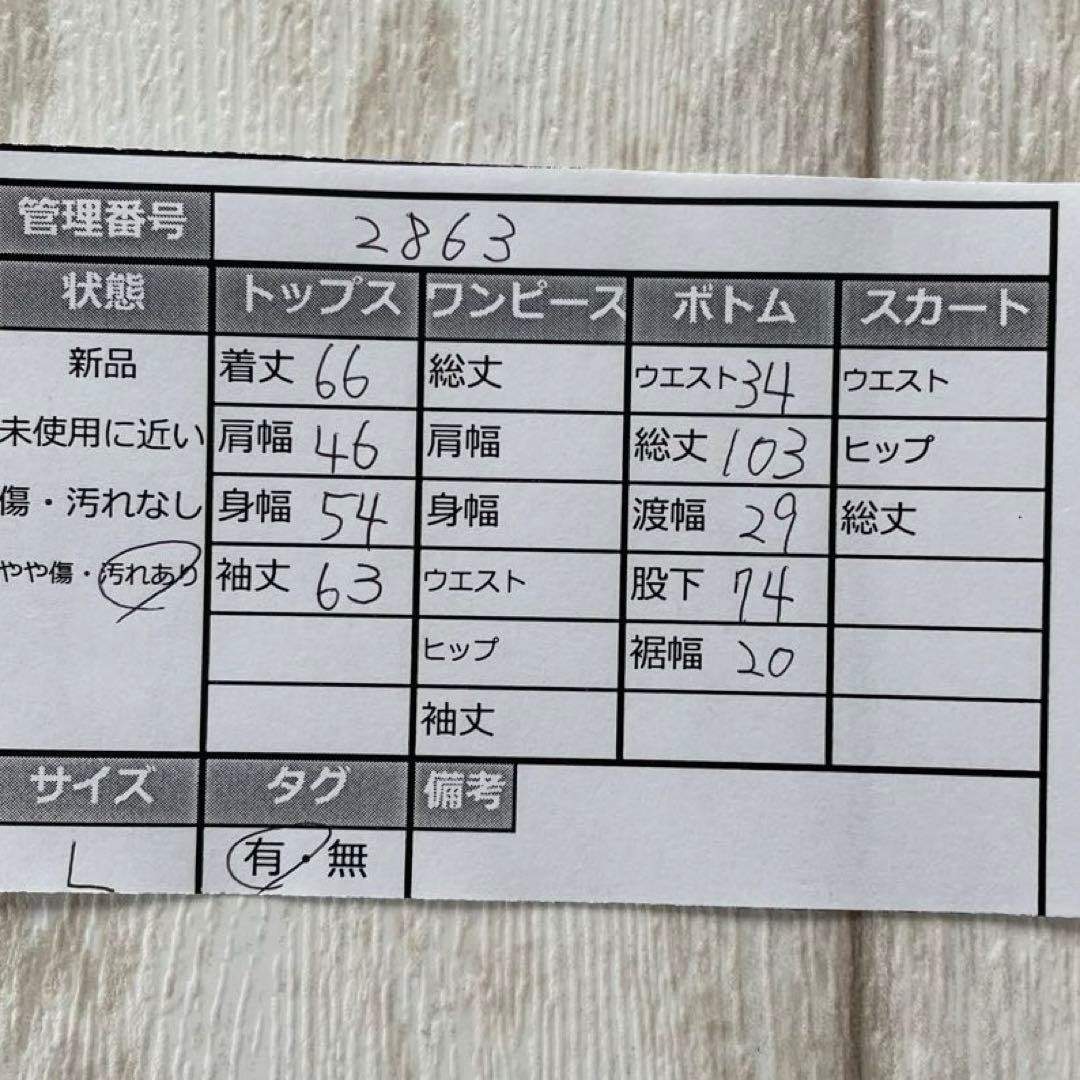 管理番号 2863
状態 トップス ワンピース ボトム スカート
新品 着丈 66 総丈 ウエスト 34 ウエスト
未使用に近い 肩幅 46 肩幅 総丈 103 ヒップ
傷・汚れなし 身幅 54 身幅 渡幅 29 総丈
やや傷・汚れあり 袖丈 63 ウエスト 股下 74
ヒップ 裾幅 20
袖丈
サイズ タグ 備考
L 有・無